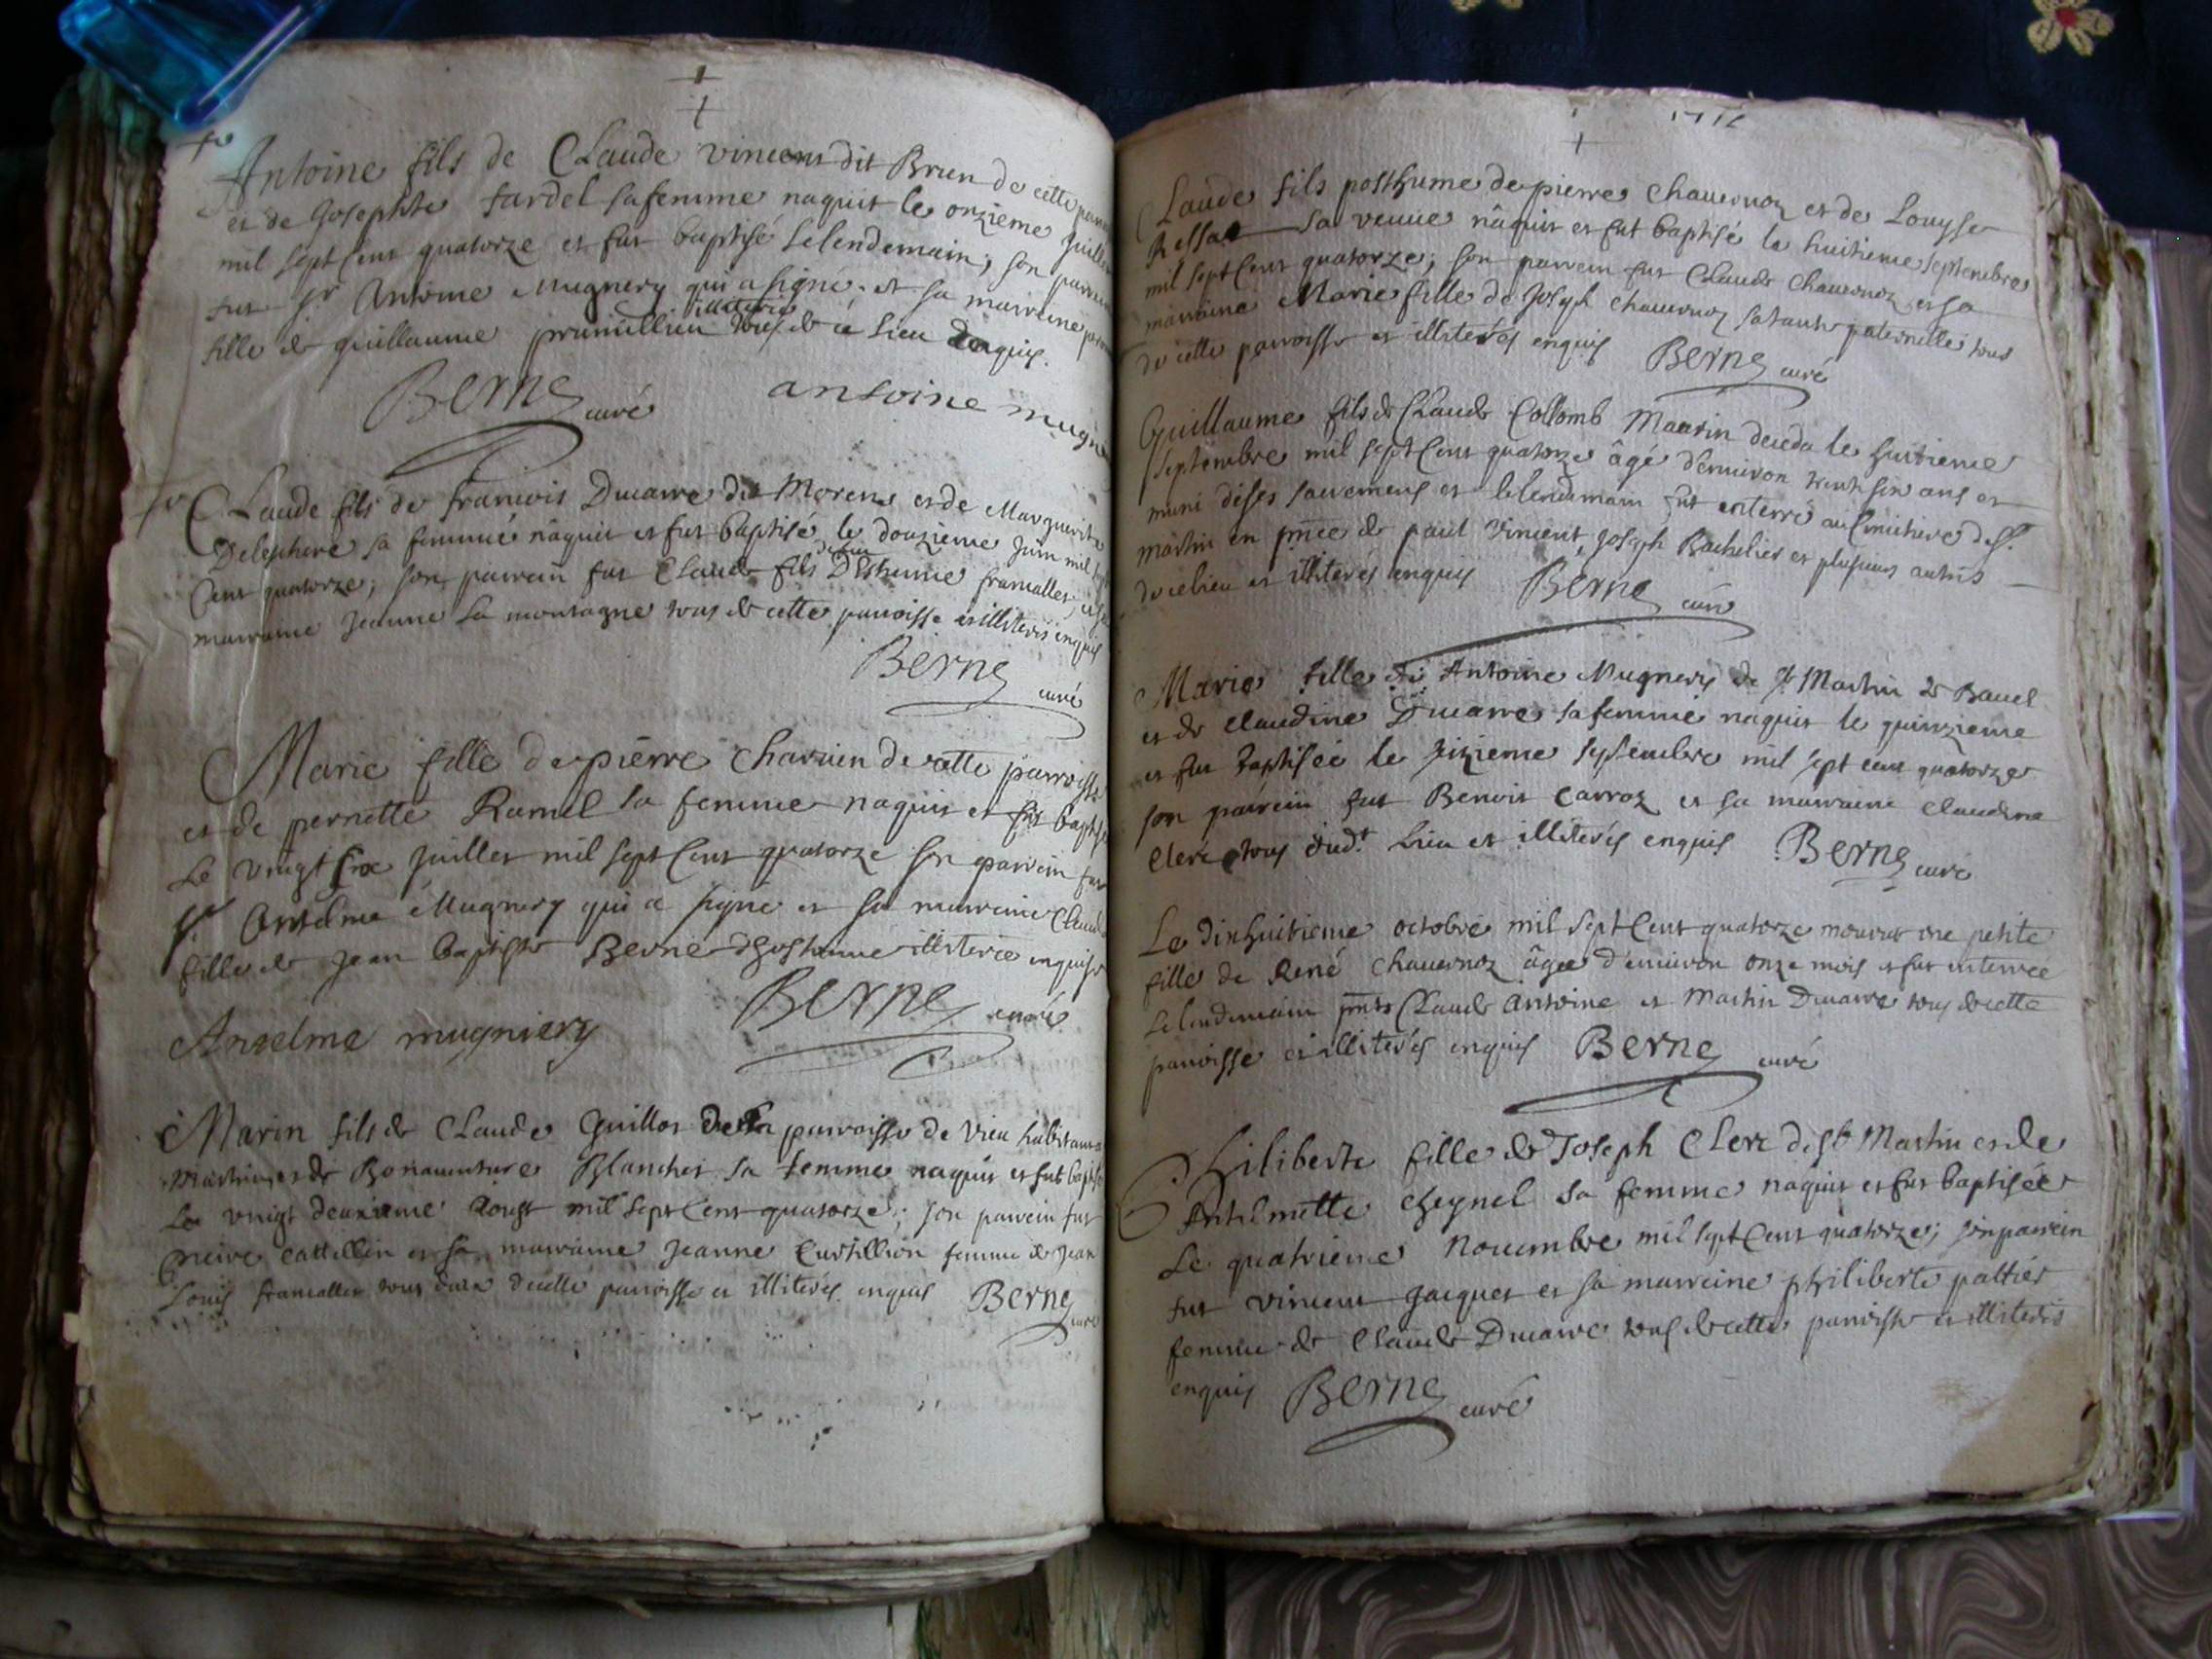 Antoine fils de Claude vincent dit Brun de cette
et de Josephte fardel sa femme naquit le onzieme Juillet
mil sept Cent quatorze et fut baptisé le lendemain; son parrein
fut Sr Antoine Mugnery qui a signé, et sa marreine
illiterée
fille de guillaume prumillieu tous de ce lieu enquis.
Berne curé antoine mugni
Claude fils de francois Ducarre dit Morens et de Marguerite
Delephere sa femme nâquit et fut baptisé le douzieme Juin mil sept
Cent quatorze; son parrein fut Claude fils francallet, et sa
marraine Jeanne La montagne tous de cette parroisse et illiterés enquis
Berne curé
Marie fille de pierre Charvin de cette parroisse
et de pernette Ramel sa femme naquit et fut baptisé
Le vingt six Juillet mil sept Cent quatorze son parrein fut
Sr Anselme Mugnery qui a signé et sa marreine Claud
fille de Jean baptiste Berne d'hostonne illiterée enquise
Berne curé
Anselme mugniery
Marin fils de Claude Guillot de la parroisse de vieu habitant a
St Martin et de Bonaventure Blanchet sa femme naquit et fut baptisé
Le vingt deuxieme Aoust mil sept Cent quatorze; son parrein fut
cattellin et sa marraine Jeanne Curtillion femme de Jean
Louis francallet tous deux de cette parroisse et illiterés enquis Berne curé
1714
Claude fils posthume de pierre Chavornoz et de Louyse
Ressat sa veuve nâquit et fut baptisé le huitieme septembre
mil sept Cent quatorze; son parrein fut Claude Chavornoz et sa
marraine Marie fille de Joseph chavornoz sa tante paternelle tous
de cette parroisse et illiterés enquis Berne curé
Guillaume fils de Claude Collomb Maurin deceda le huitieme
septembre mil sept Cent quatorze âgé d'environ trente six ans et
muni de ses sacremens et le lendemain fut enterré au Cimitiere de St
martin en pnce de paul Vincent, Joseph Bachelier et plusieurs autres
de ce lieu et illiterés enquis Berne curé
Marie fille de Antoine Mugnery de St Martin de Bavel
et de Claudine Ducarre sa femme naquit le quinzieme
et fut baptisée le sizieme septembre mil sept cent quatorze
son parrein fut Benoit Carroz et sa marraine Claudine
Clerc tous dudt Lieu et illiterés enquis Berne curé
Le dixhuitieme octobre mil sept Cent quatorze mourut une petite
fille de René Chavornoz âgee d'environ onze mois et fut enterrée
le lendemain pnts Claude Antoine et Martin Ducarre tous de cette
parroisse et illiterés enquis Berne curé
Philiberte fille de Joseph Clerc de St Martin et de
Anthelmette Cheynel sa femme naquit et fut baptisée
Le quatrieme Novembre mil sept Cent quatorze; son parrein
fut vincent Jacquet et sa marreine philiberte paltier
femme de Claude Ducarre tous de cette parroisse et illiterés
enquis Berne curé